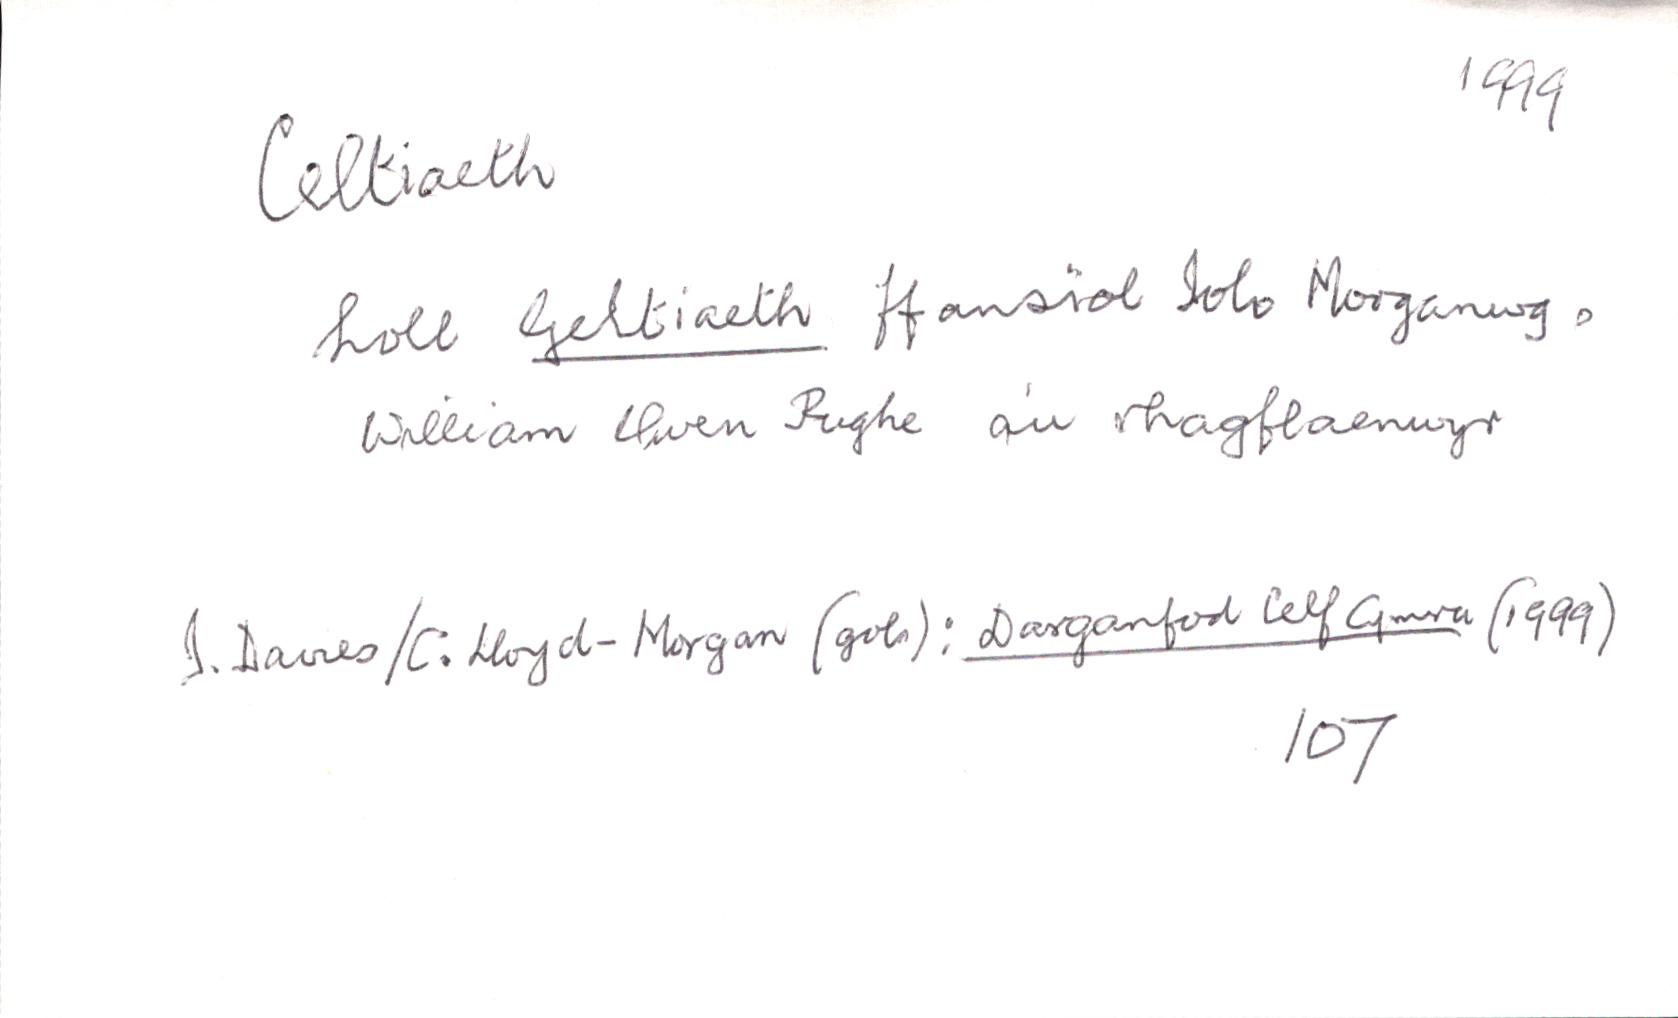 1999
Celtiaeth
holl Geltiaeth ffansïol Iolo Morganwg,
William Owen Pughe a'u rhagflaenwyr
I. Davies/C. Lloyd-Morgan (gols): Darganfod Celf Cymru (1999)
107